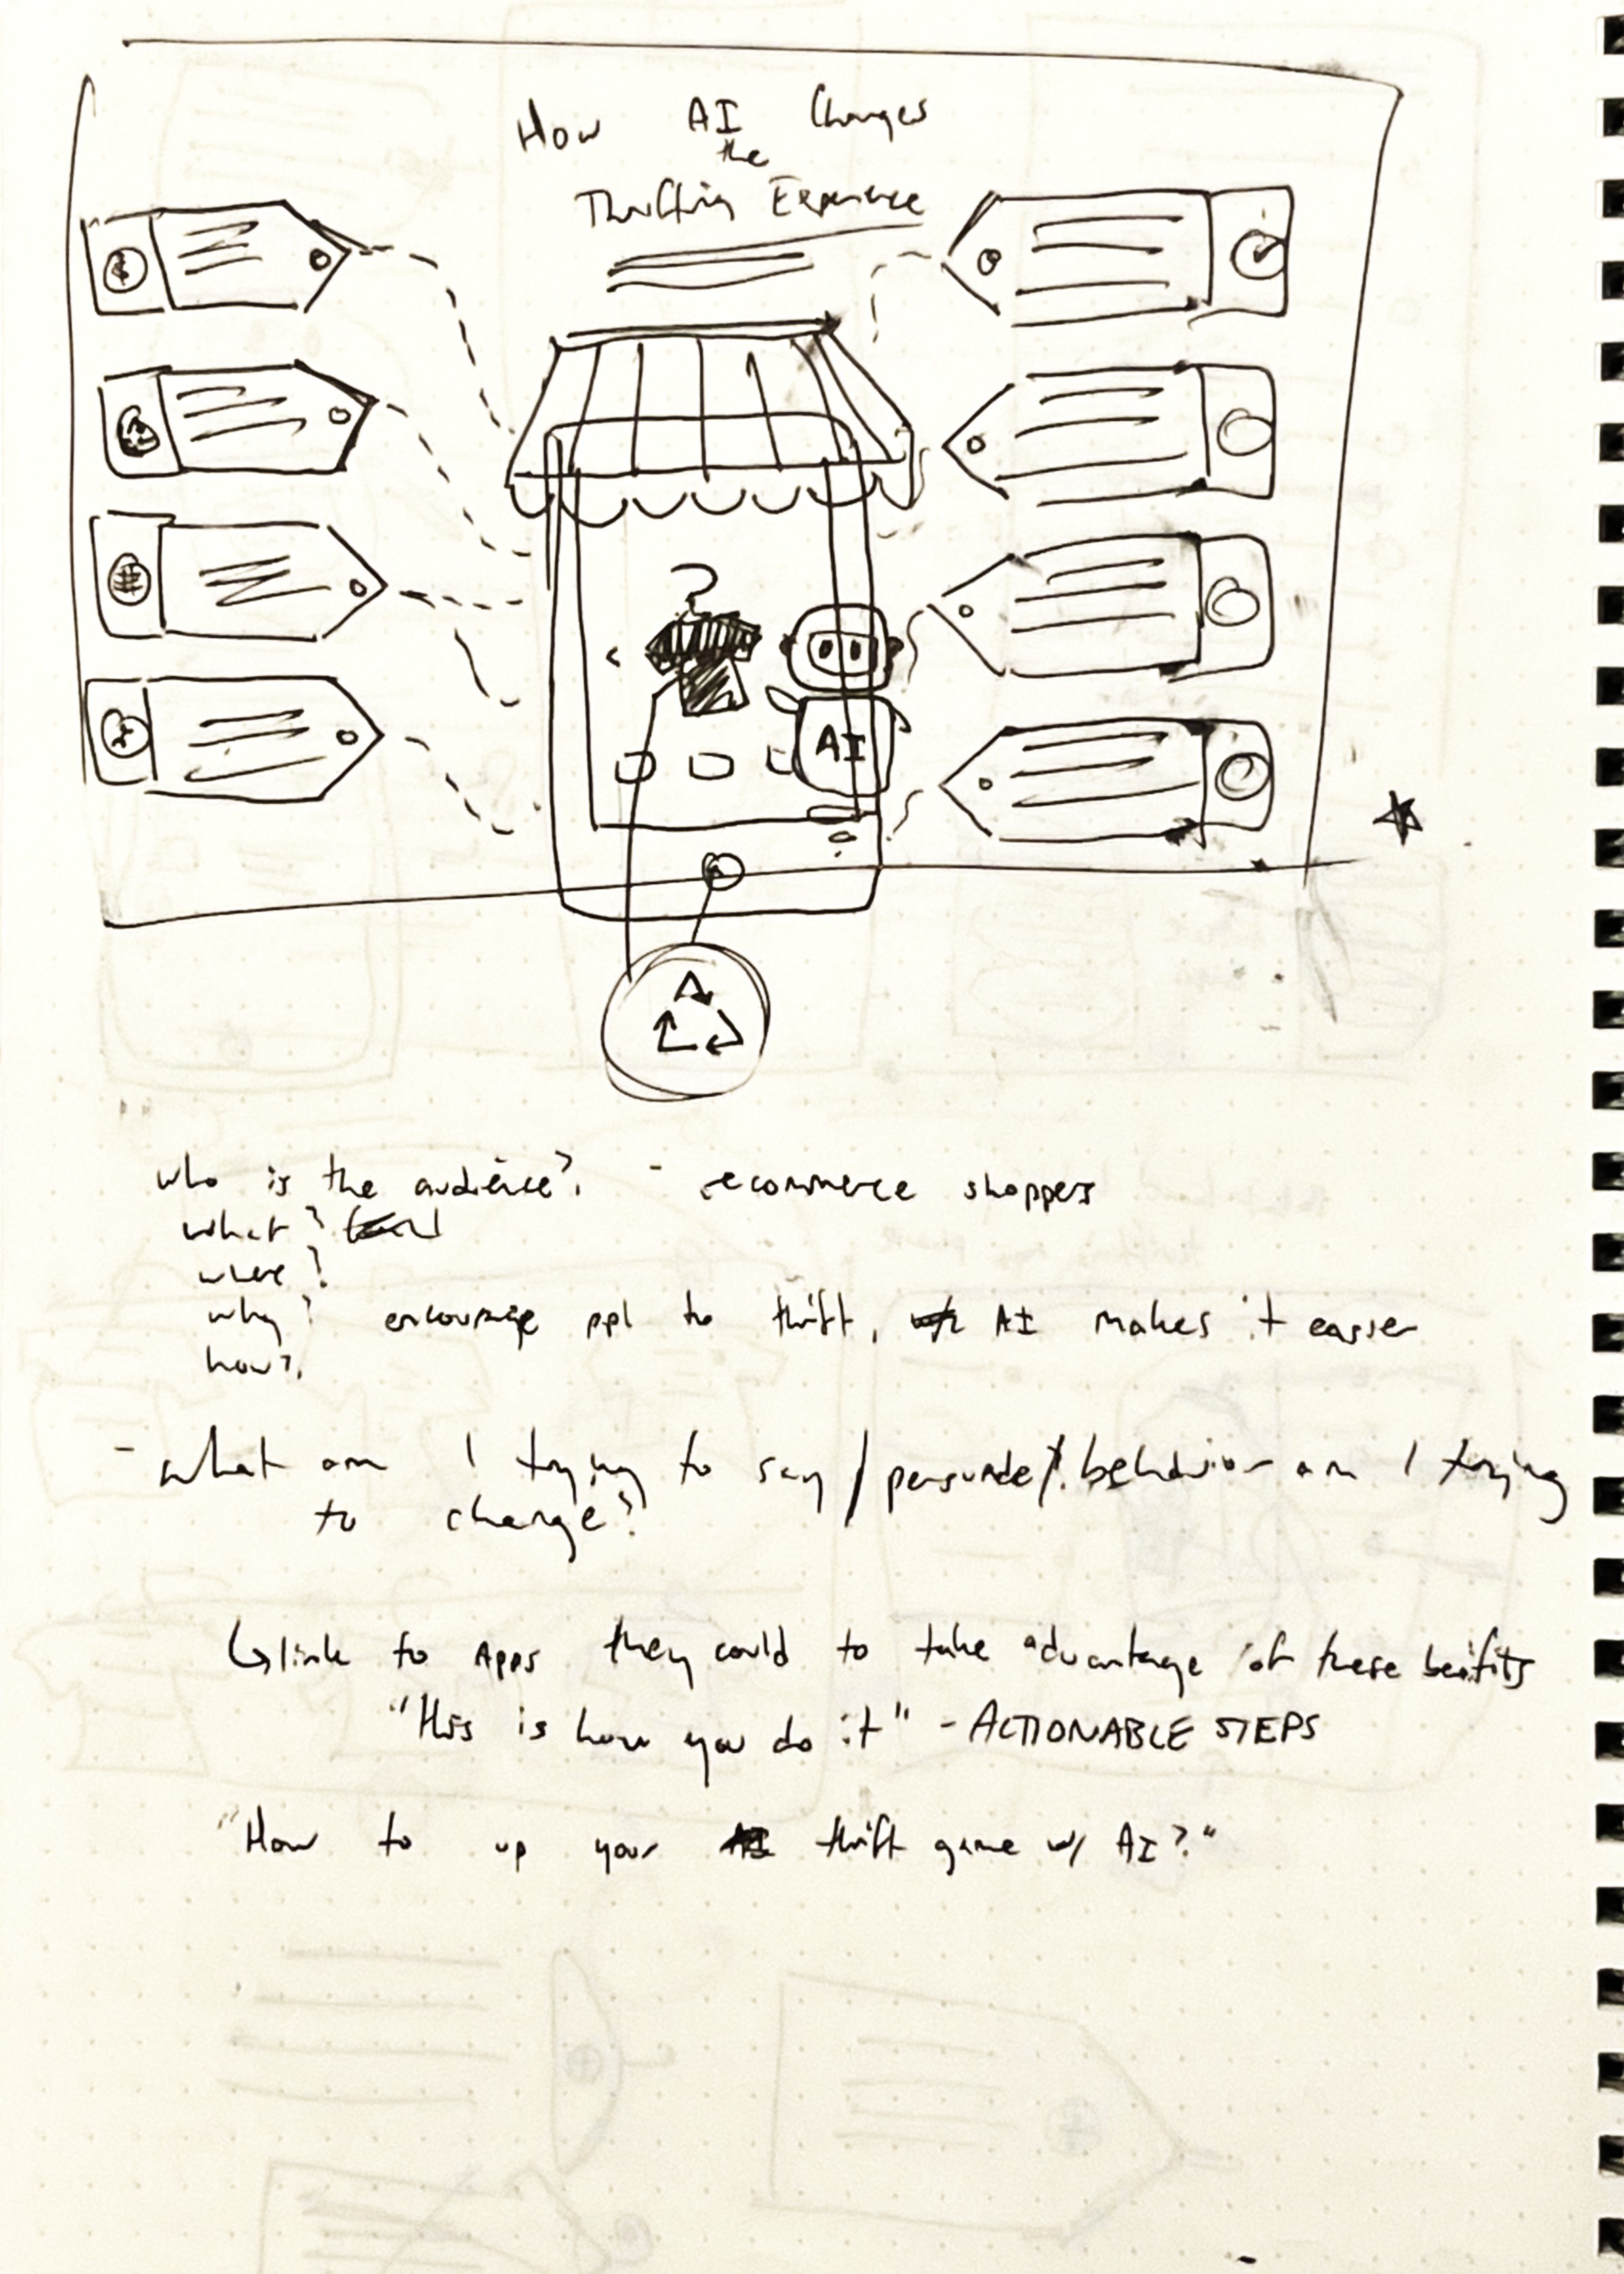 How AI Changes
the
Thrifting Experience
AI
who is the audience? - ecommerce shoppers
what?
where?
why? encourage ppl to thrift, AI makes it easier
how?
- what am I trying to say / persuade /. behavior am I trying
to change?
link to Apps they could to take advantage of these benifits
"this is how you do it" - ACTIONABLE STEPS
"How to up your thrift game w/ AI?"